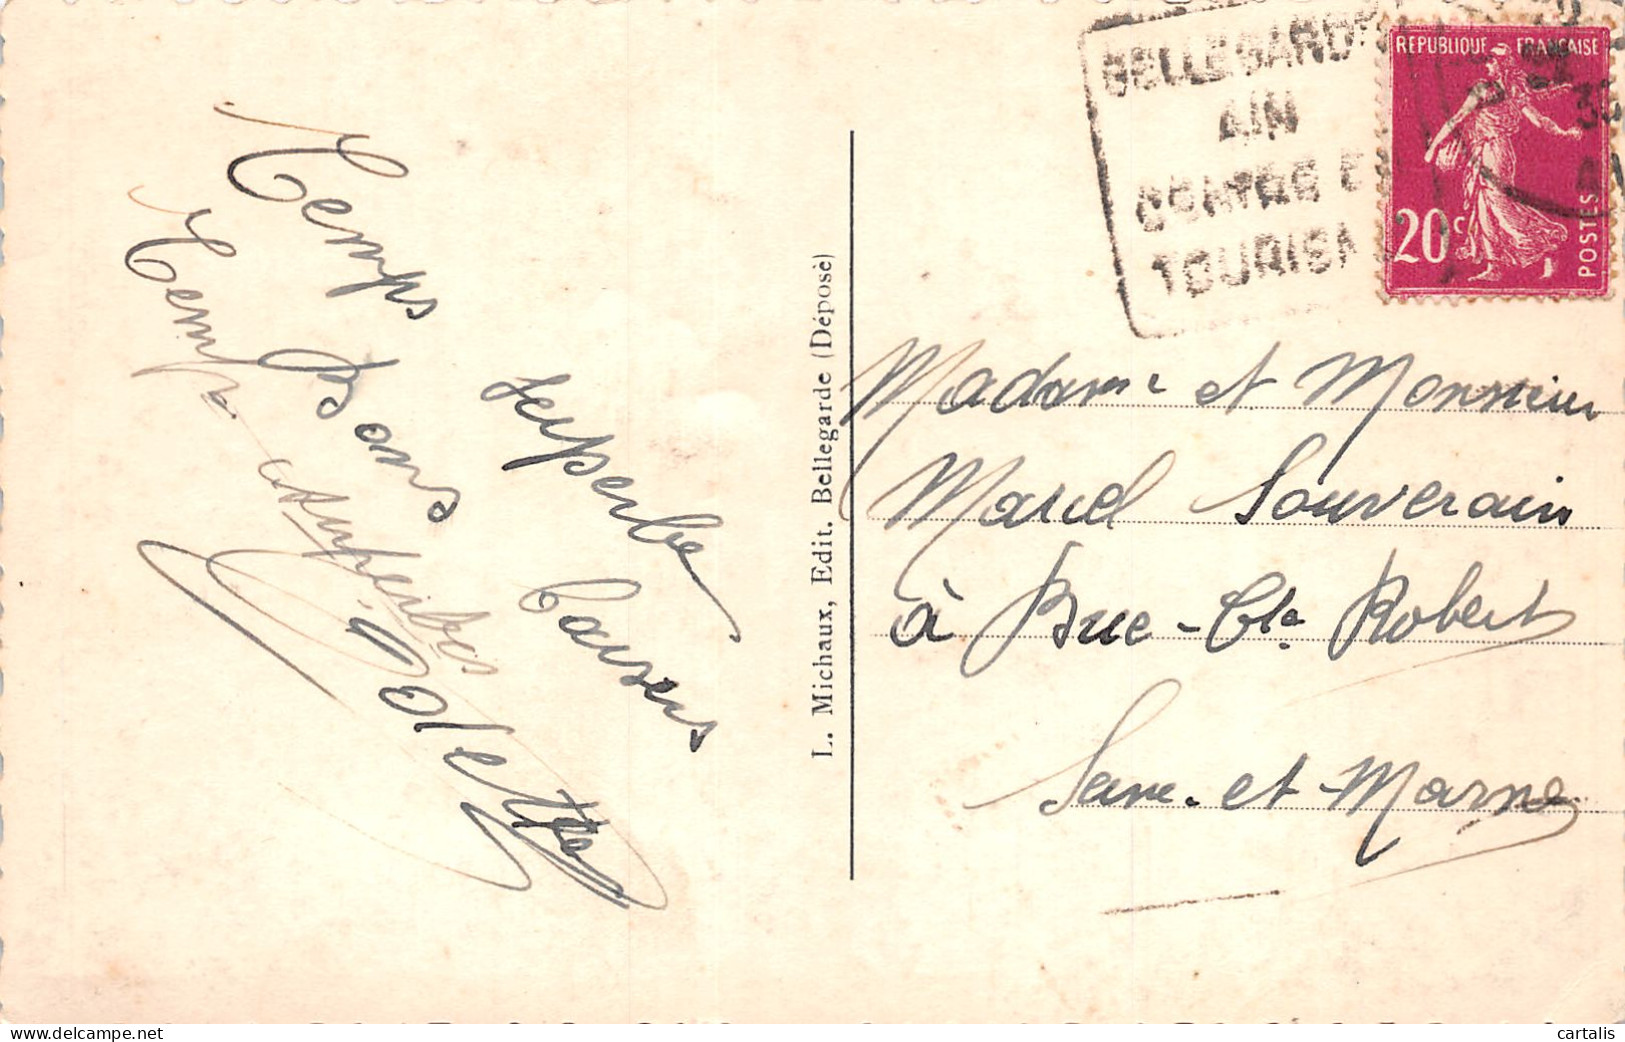 Temps superbe
Bons baisers
Colette
L. Michaux, Edit. Bellegarde (Déposé)
BELLEGARDE
AIN
CENTRE
TOURISM
REPUBLIQUE FRANÇAISE
20c
POSTES
Madame et Monsieur
Marcel Souverain
à Brie-Cte Robert
Seine-et-Marne
cartalis
www.delcampe.net